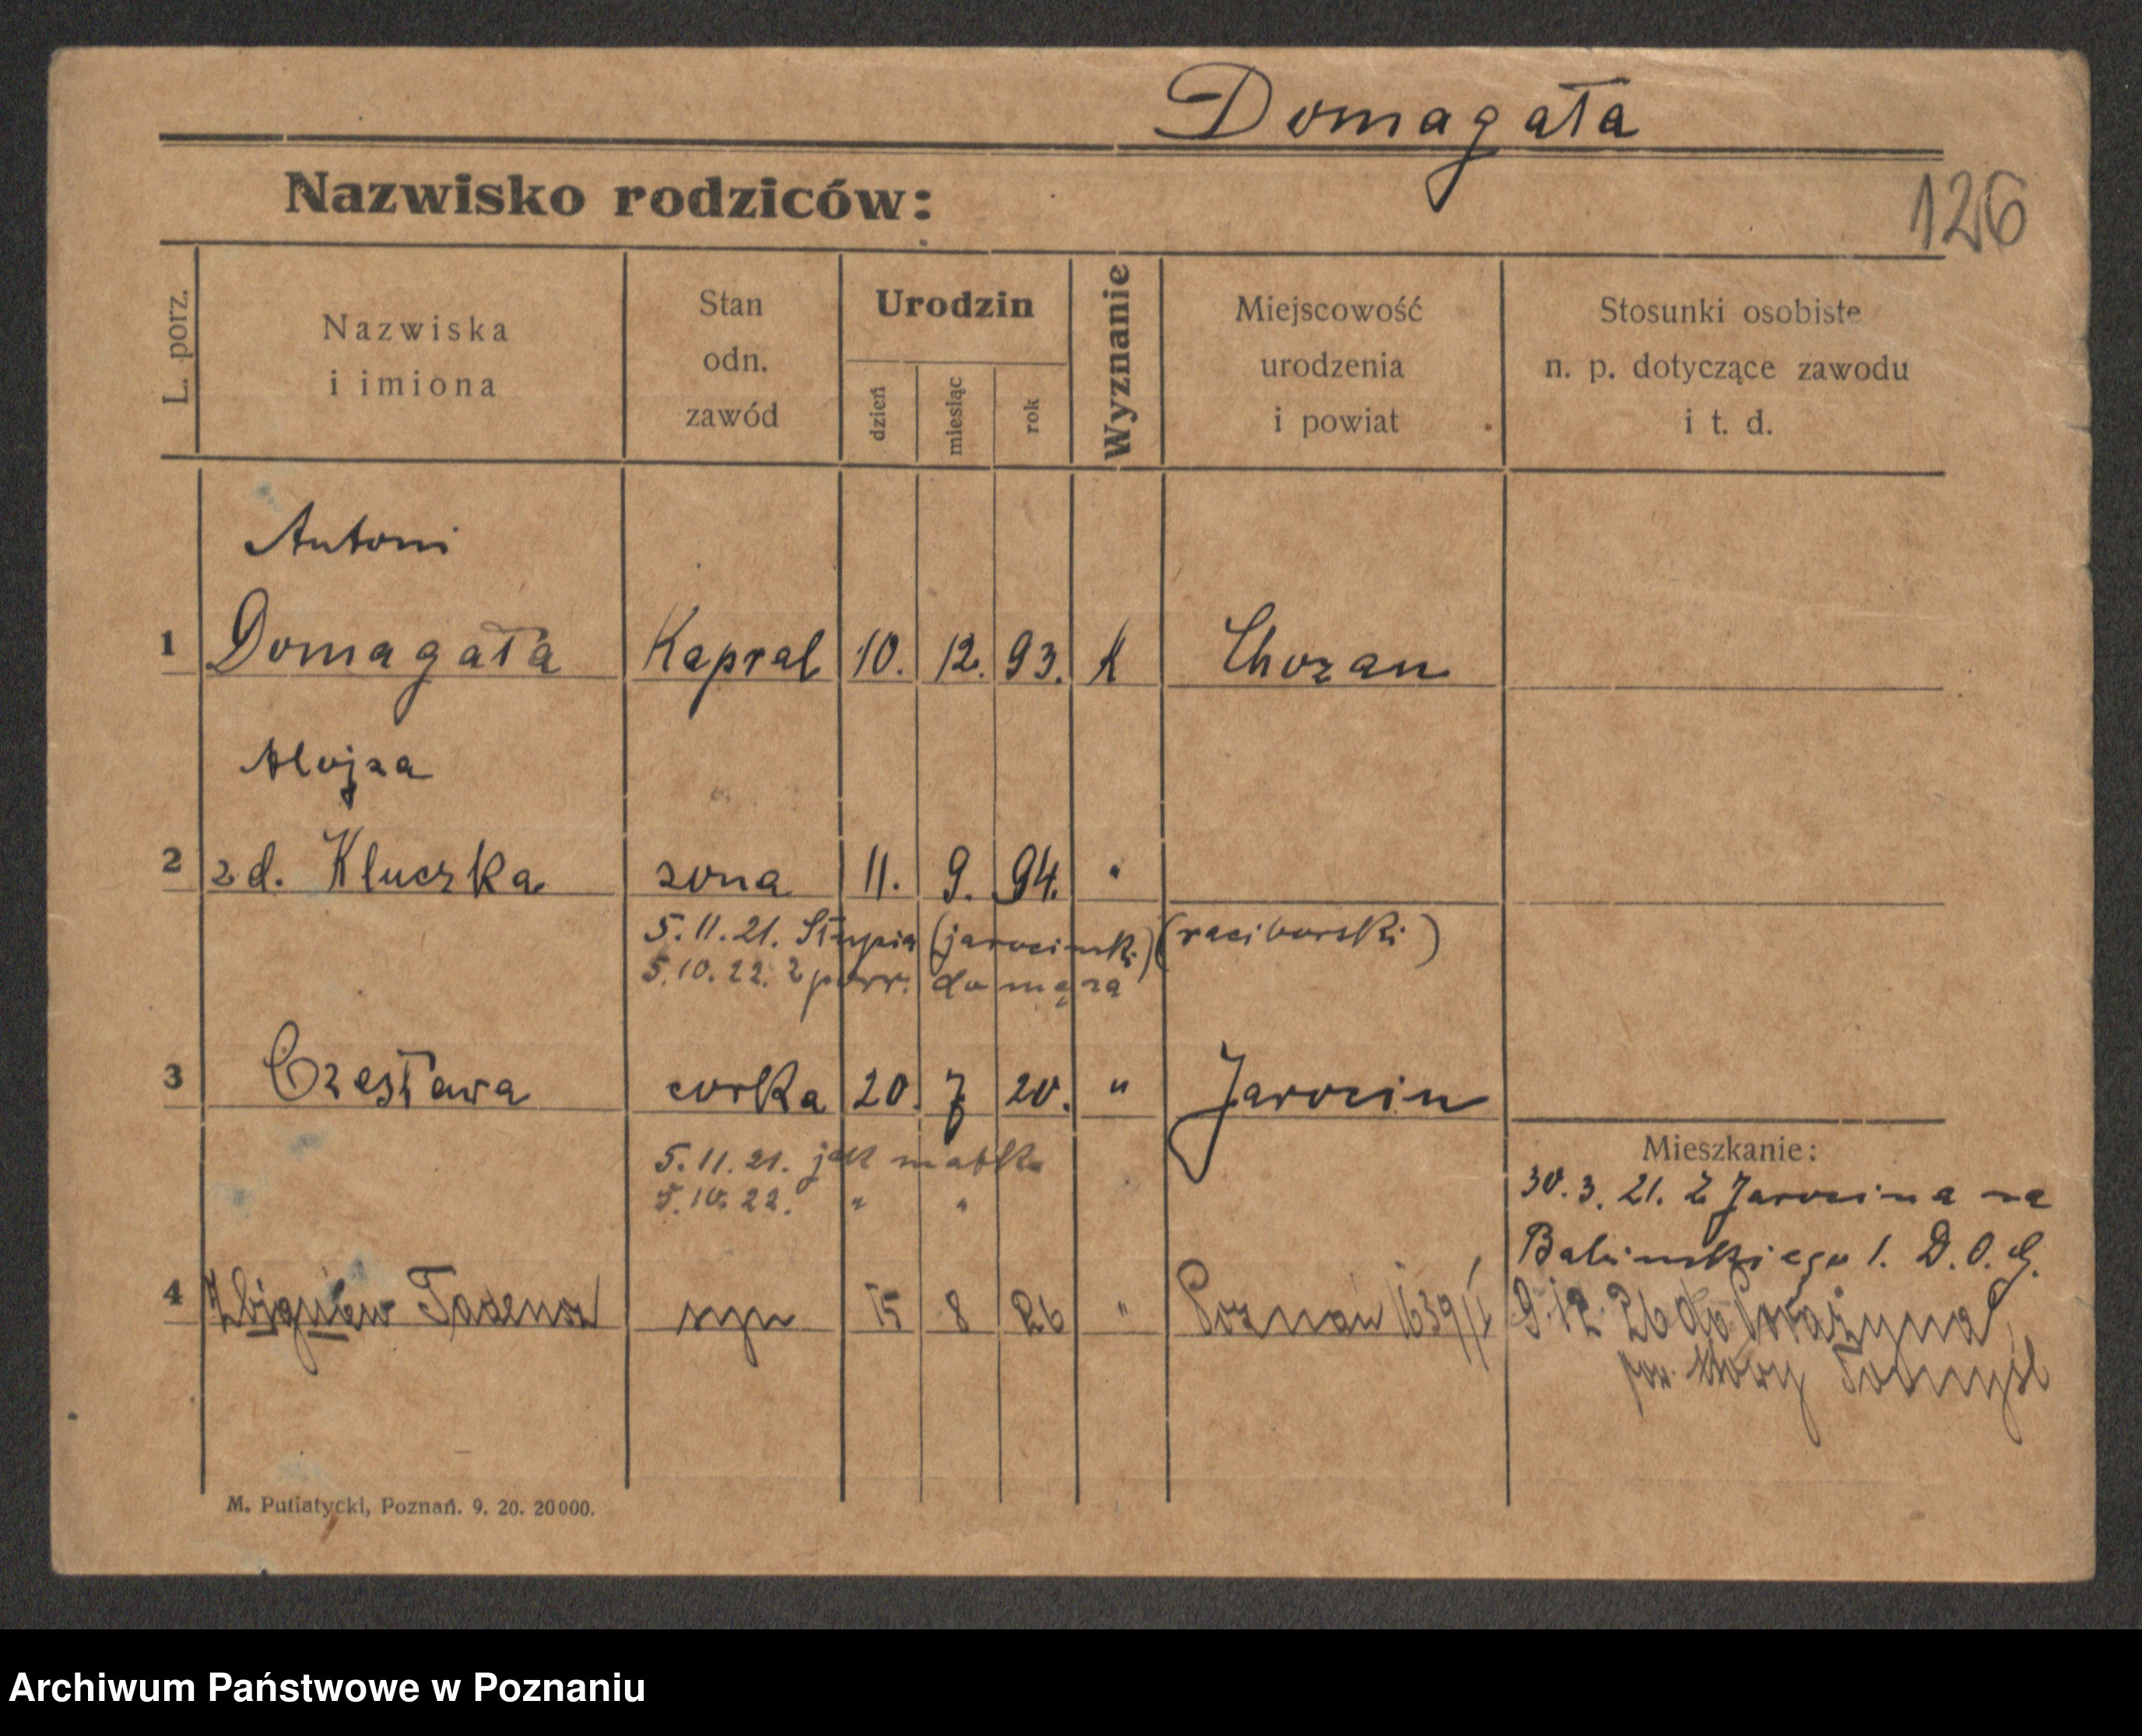 Domagała
Nazwisko rodziców:
126
L. porz.
Nazwiska
i imiona
Stan
odn.
zawód
Urodzin
dzień
miesiąc
rok
Wyznanie
Miejscowość
urodzenia
i powiat
Stosunki osobiste
n. p. dotyczące zawodu
i t. d.
Antoni
1 Domagała Kapral 10. 12. 93. K Chozan
Alojza
2 zd. Kluczka zona 11. 9. 94. "
5.11.21. Słupia (jarocinsk.) (raciborski)
5.10.22. Z powr. do męza
3 Czesława corka 20. 7 20. " Jarocin
5.11.21. jak matka
5.10.22. " "
Mieszkanie:
30.3.21. Z Jarocina na
Babinskiego 1. D.O.G.
4 Zbigniew Tadeusz syn 15 8 26 " Poznań 1639/
9.12.26 do
pow. Nowy Tomyśl
M. Putiatycki, Poznań. 9. 20. 20000.
Archiwum Państwowe w Poznaniu